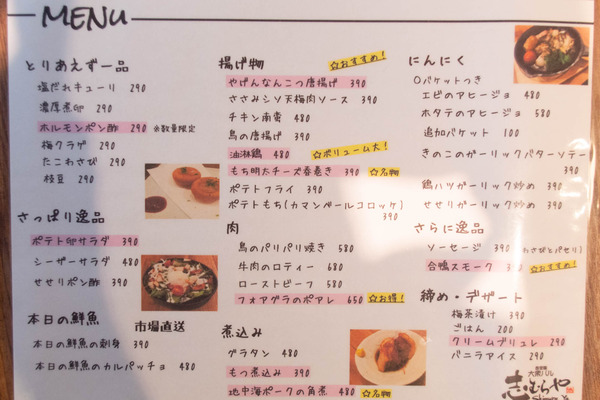 MENU
とりあえず一品
塩だれキューリ 290
濃厚煮卵 290
ホルモンポン酢 290 ※数量限定
梅クラゲ 290
たこわさび 290
枝豆 290
さっぱり逸品
ポテト卵サラダ 390
シーザーサラダ 480
せせりポン酢 390
本日の鮮魚 市場直送
本日の鮮魚の刺身 390
本日の鮮魚のカルパッチョ 480
揚げ物 ☆おすすめ!
やげんなんこつ唐揚げ 390
ささみシソ天梅肉ソース 390
チキン南蛮 480
鳥の唐揚げ 390
油淋鶏 480 ☆ボリューム大!
もち明太チーズ春巻き 390 ☆名物
ポテトフライ 390
ポテトもち(カマンベールコロッケ)
390
肉
鳥のパリパリ焼き 580
牛肉のロティー 680
ローストビーフ 580
フォアグラのポアレ 650 ☆お得!
煮込み
グラタン 480
もつ煮込み 390
地中海ポークの角煮 480 ☆名物
にんにく
○バケットつき
エビのアヒージョ 480
ホタテのアヒージョ 580
追加バケット 100
きのこのガーリックバターソテー
390
鶏ハツガーリック炒め 390
せせりガーリック炒め 390
さらに逸品
ソーセージ 390 (わさびとパセリ)
合鴨スモーク 390 ☆おすすめ!
締め・デザート
梅茶漬け 390
ごはん 200
クリームブリュレ 290
バニラアイス 290
大衆バル
志むらや